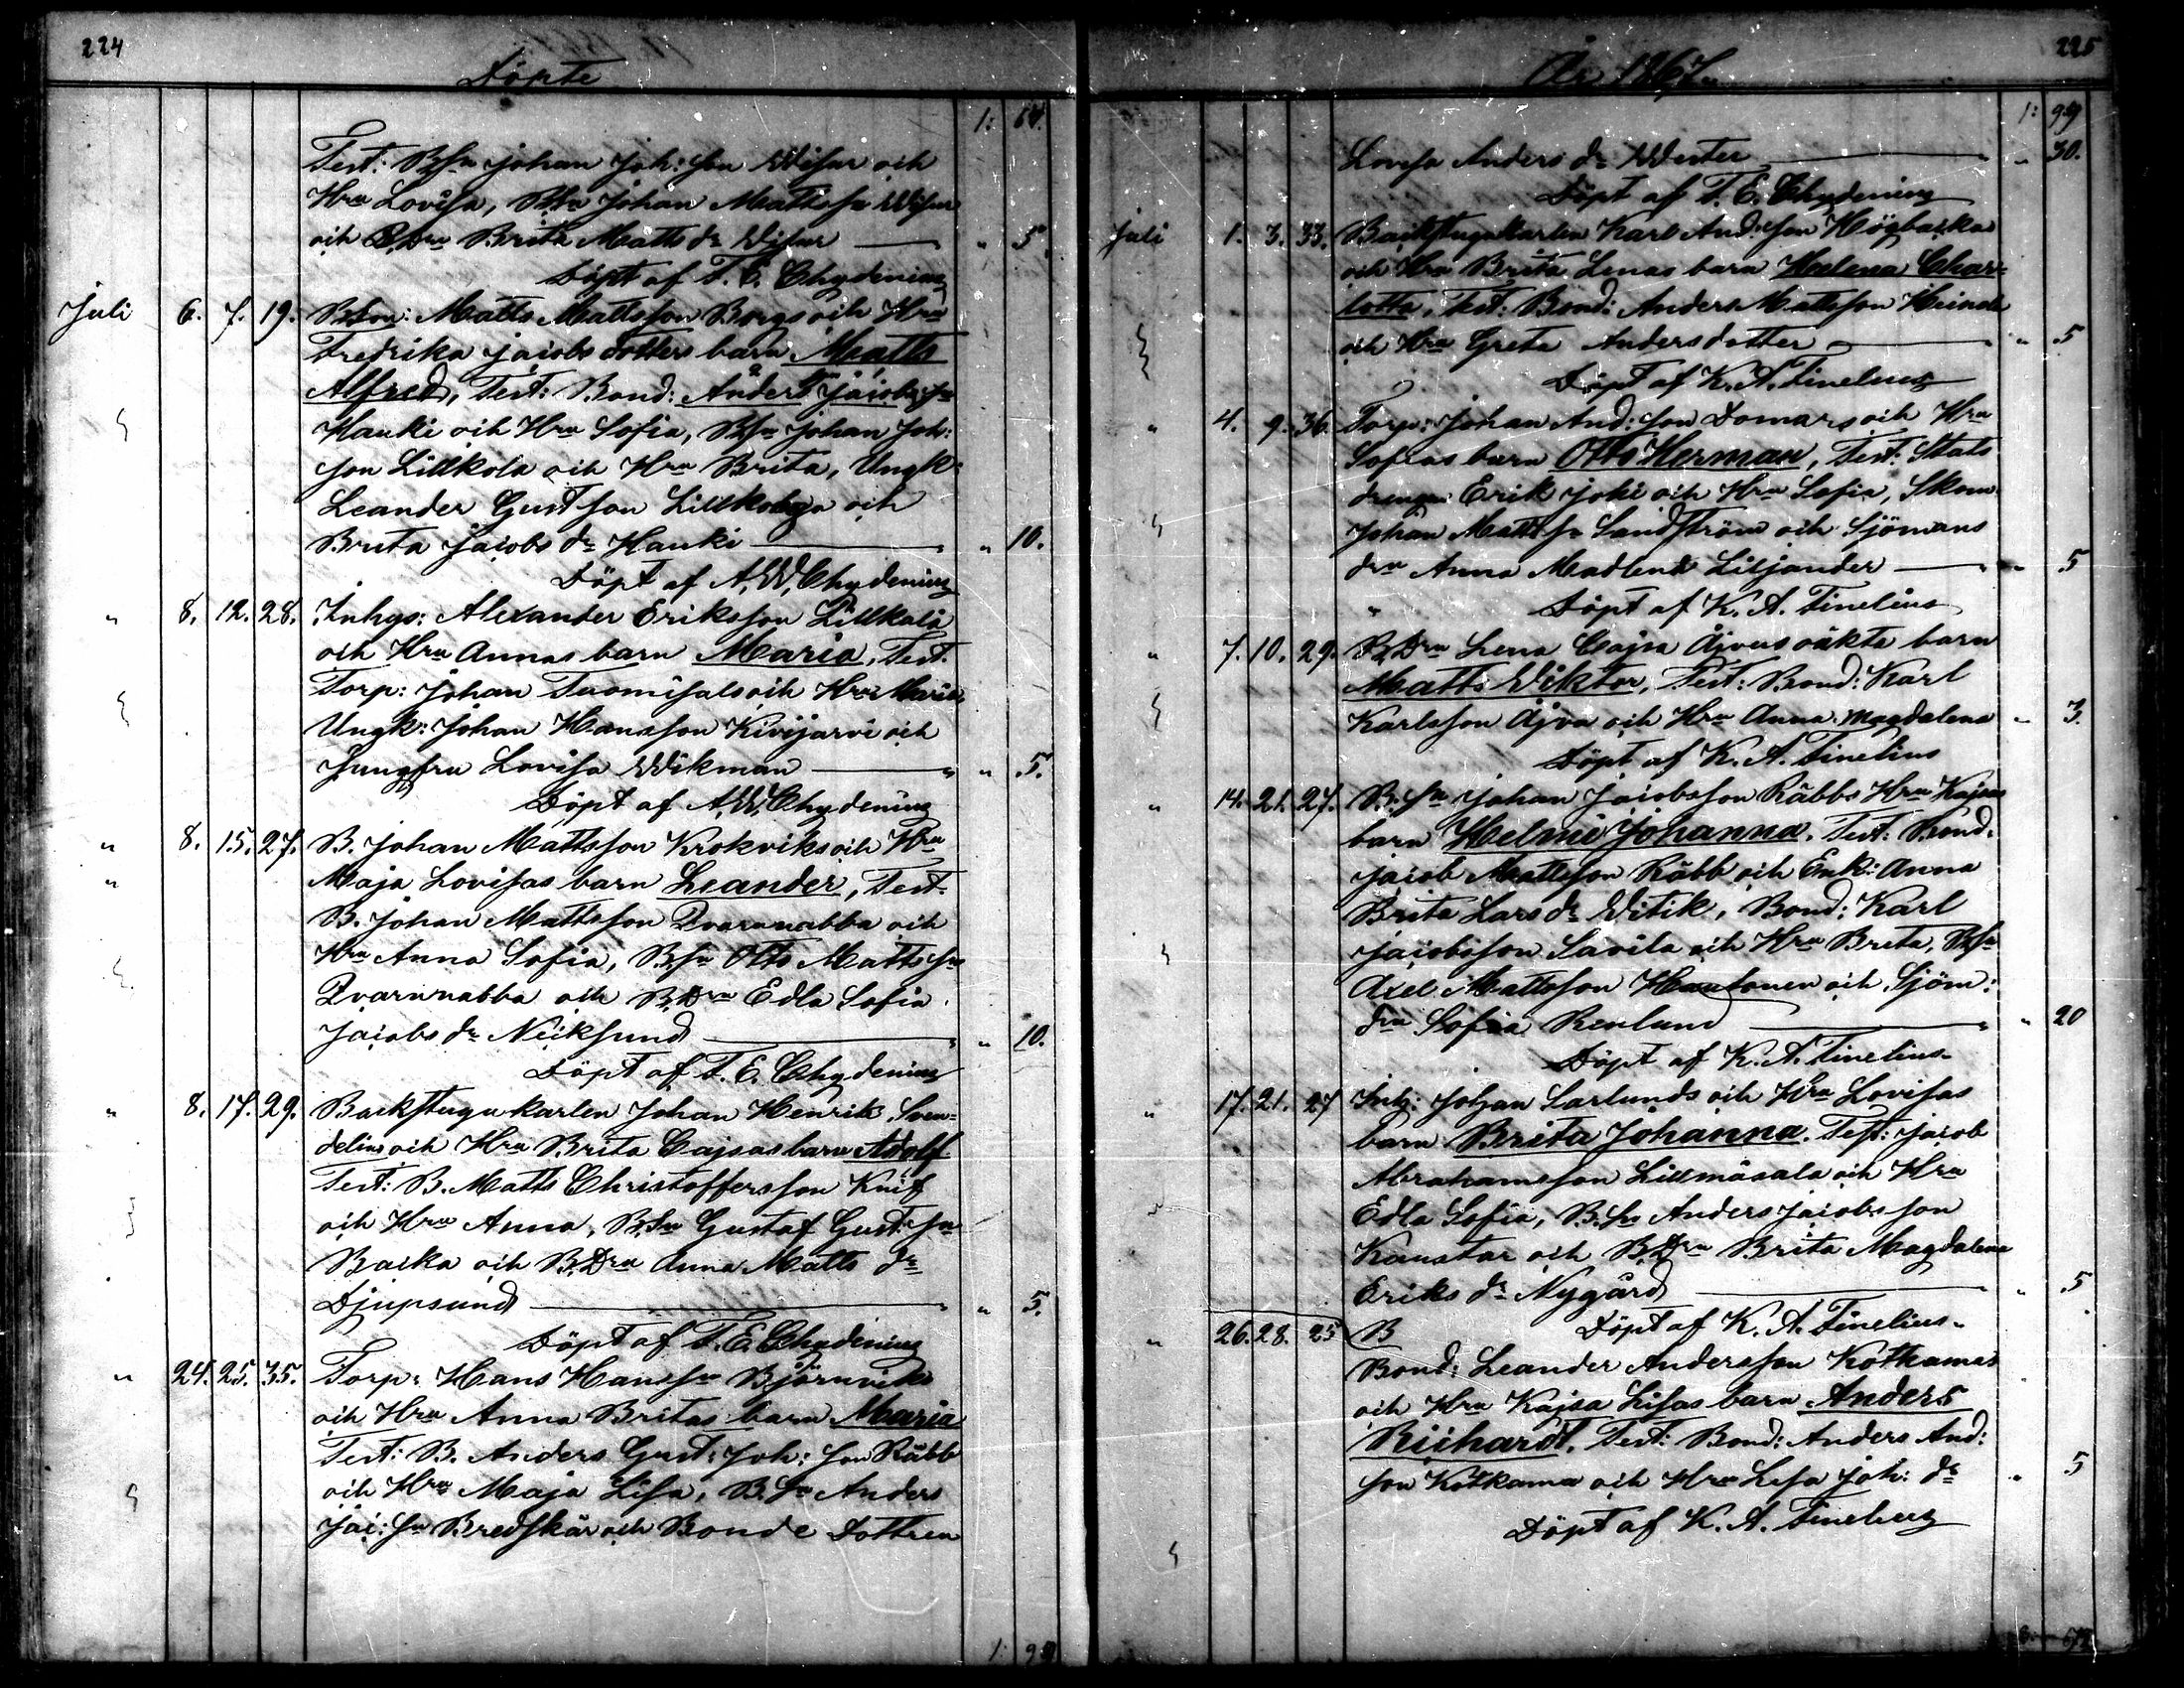 224
Döpte
1: 64.
Test: BSn Johan Joh: son Wisur och
Hru Lovisa, BSn Johan Mattsson Wisur
och BDrn Brita Matts dr Wisur — " 5.
Döpt af T. E. Chydenius
Juli 6. 7. 19. BSon: Matts Mattsson Borgs och Hru
Fredrika Jacobsdotters barn Matts
Alfred, Test: Bond: Anders Jacobsson
Hauki och Hru Sofia, BSn Johan Joh:
son Lillkola och Hru Brita, Ungk:
Leander Gustson och
Brita Jacobs dr Hauki — " 10.
Döpt af A. W. Chydenius
" 8. 12. 28. Inhys: Alexander Eriksson Lillkalä
och Hru Annas barn Maria, Test.
Torp: Johan Tuomisalo och Hru Maria,
Ungk: Johan Hansson Kivijarvi och
Jungfru Lovisa Wikman — " 5.
Döpt af A. W. Chydenius
" 8. 15. 27. B. Johan Mattsson Krokviks och Hru
" Maja Lovisas barn Leander, Test.
B. Johan Mattsson Qvarnnabba och
Hru Anna Sofia, BSn Otto Mattsson
Qvarnnabba och BDrn Edla Sofia
Jacobs dr Neiksund — " 10.
Döpt af T. E. Chydenius
" 8. 17. 29. Backstugukarlen Johan Henrik Sven=
delins och Hru Brita Cajsas barn Adolf
Test: B. Matts Christoffersson Knif
och Hru Anna, BSn Gustaf Gust: sn
Backa och BDrn Anna Matts dr
Djupsund — " 5.
Döpt af T. E. Chydenius
" 24. 25. 35. Torp: Hans Hansson Björnviks
och Hru Anna Britas barn Maria
Test: B. Anders Gust: Joh: son Räbb
och Hru Maja Lisa, B.Sn Anders
Jac: Sn Bredskär och Bonde Dottren
1. 99
225
År 1867
1: 99
Lovisa Anders dr Wester — " 30.
Döpt af T. E. Chydenius
Juli 1. 3. 33. Backstugukarlen Karl And:son Högbacka
och Hru Brita Lenas barn Helena Char=
lotta, Test: Bond: Anders Mattsson Heinola
och Hru Greta Andersdotter — " 5
Döpt af K. A. Finelius
" 4. 9. 36. Torp: Johan And: son Domars och Hru
Sofias barn Otto Herman, Test: Stats
drengen Erik Joki och Hru Sofia, Skom
Johan Matts Sn Sandström och Sjömans
drn Anna Madlena Liljander — " 5
" Döpt af K. A. Finelius
" 7. 10. 29. BDrn Lena Cajsa Äjvas oäkta barn
Matts Wiktor, Test: Bond: Karl
Karlsson Äjva och Hru Anna Magdalena " 3.
Döpt af K. A. Finelius
" 14. 21. 27. B: Sn Johan Jacobsson Räbbs Hru Kajsas
barn Helmi Johanna, Test: Bond.
Jacob Mattsson Räbb och Enk: Anna
Brita Lars dr Witik, Bond: Karl
Jacobsson Savila och Hru Brita, BSn
Axel Mattsson Hautonen och Sjöm:
drn Sofia Renlund — " 20
Döpt af K. A. Finelius
" 17. 21. 27 Inh: Johan Sarlunds och Hru Lovisas
barn Brita Johanna. Test: Jacob
Abrahamsson Lillmäsala och Hru
Edla Sofia, B. Sn Anders Jacobsson
Kaustar och B.Drn Brita Magdalena
Eriks dr Nygård — " 5
" 26. 28. 25 B Döpt af K. A. Finelius
Bond: Leander Andersson Kotkamas
och Hru Kajsa Lisas barn Anders
Richard, Test: Bond: Anders And:
son Kotkama och Hru Lisa Joh: dr " 5
Döpt af K. A. Finelius